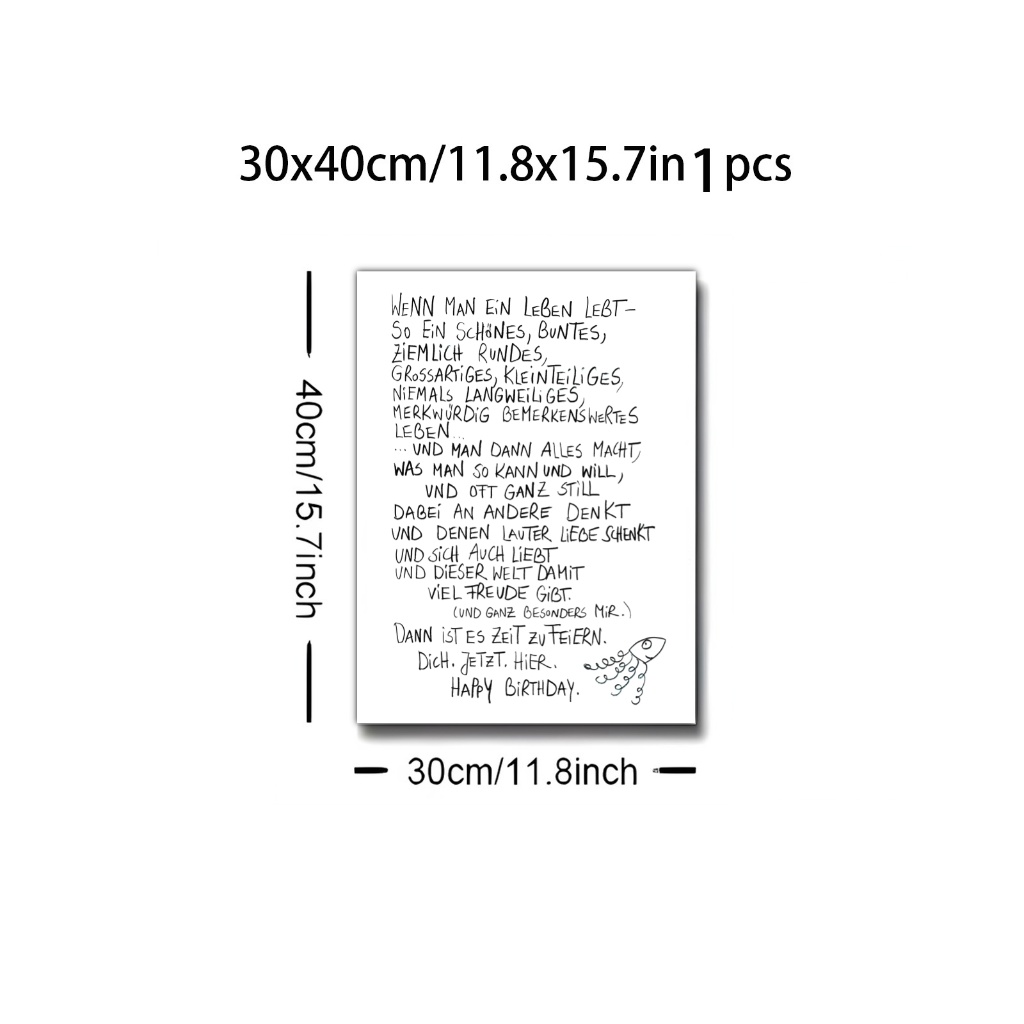 30x40cm/11.8x15.7in 1 pcs
WENN MAN EIN LEBEN LEBT –
SO EIN SCHÖNES, BUNTES,
ZIEMLICH RUNDES,
GROSSARTIGES, KLEINTEILIGES,
NIEMALS LANGWEILIGES,
MERKWÜRDIG BEMERKENSWERTES
LEBEN...
... UND MAN DANN ALLES MACHT,
WAS MAN SO KANN UND WILL,
UND OFT GANZ STILL
DABEI AN ANDERE DENKT
UND DENEN LAUTER LIEBE SCHENKT
UND SICH AUCH LIEBT
UND DIESER WELT DAMIT
VIEL FREUDE GIBT.
(UND GANZ BESONDERS MIR.)
DANN IST ES ZEIT ZU FEIERN.
DICH. JETZT. HIER.
HAPPY BIRTHDAY.
40cm/15.7inch
30cm/11.8inch